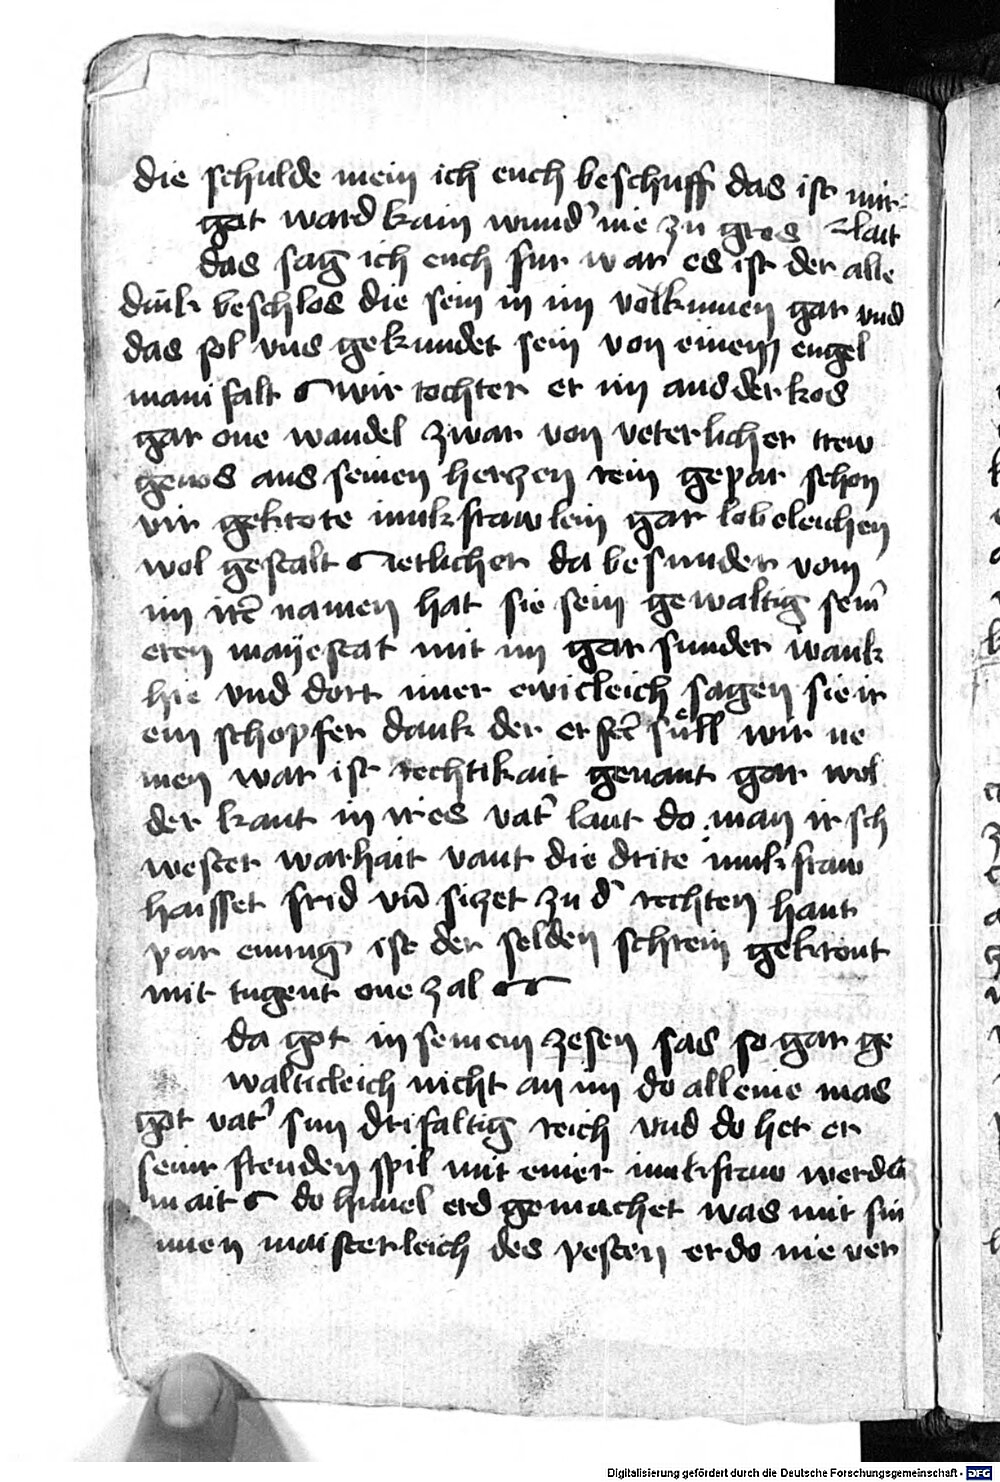 die schulde mein ich euch beschuff das ist mir
got ward kain wund' nie zu gros lait
das sag ich euch fur war es ist der alle
dink beschlos die sein in im volkumen gar vnd
das sol vns gekundet sein von einem engel
manifalt wir tochter er im ausderkos
gar one wandel zwar von veterlicher trew
genos aus seinen herzen rein gepar schon
vir gekrote iunkfrawlein gar lobeleichen
wol gestalt ietlicher da besunder vom
im irē namen hat sie sein gewaltig sein
eren mayestat mit im gar sunder wank
hie vnd dort imer ewicleich sagen sie ir
em schopfer dank der erst sull wir ne
men war ist rechtikait genant gar wol
der kant in ires vat' lant do man ir sch
wester warhait vant die drite iunkfraw
haisset frid vn̄ siczet zu d' rechten hant
par ist der selden schrein gekront
mit tugent one zal
da got in seinem zesen sas so gar ge
walticleich nicht an im do alleine mas
got vat' sun drifaltig reich vnd do het er
seinr freuden spil mit einer iunkfraw werde
mait do himel erd gemachet was mit sin
nen maisterleich des pesten er do nie ver
Digitalisierung gefördert durch die Deutsche Forschungsgemeinschaft - DFG